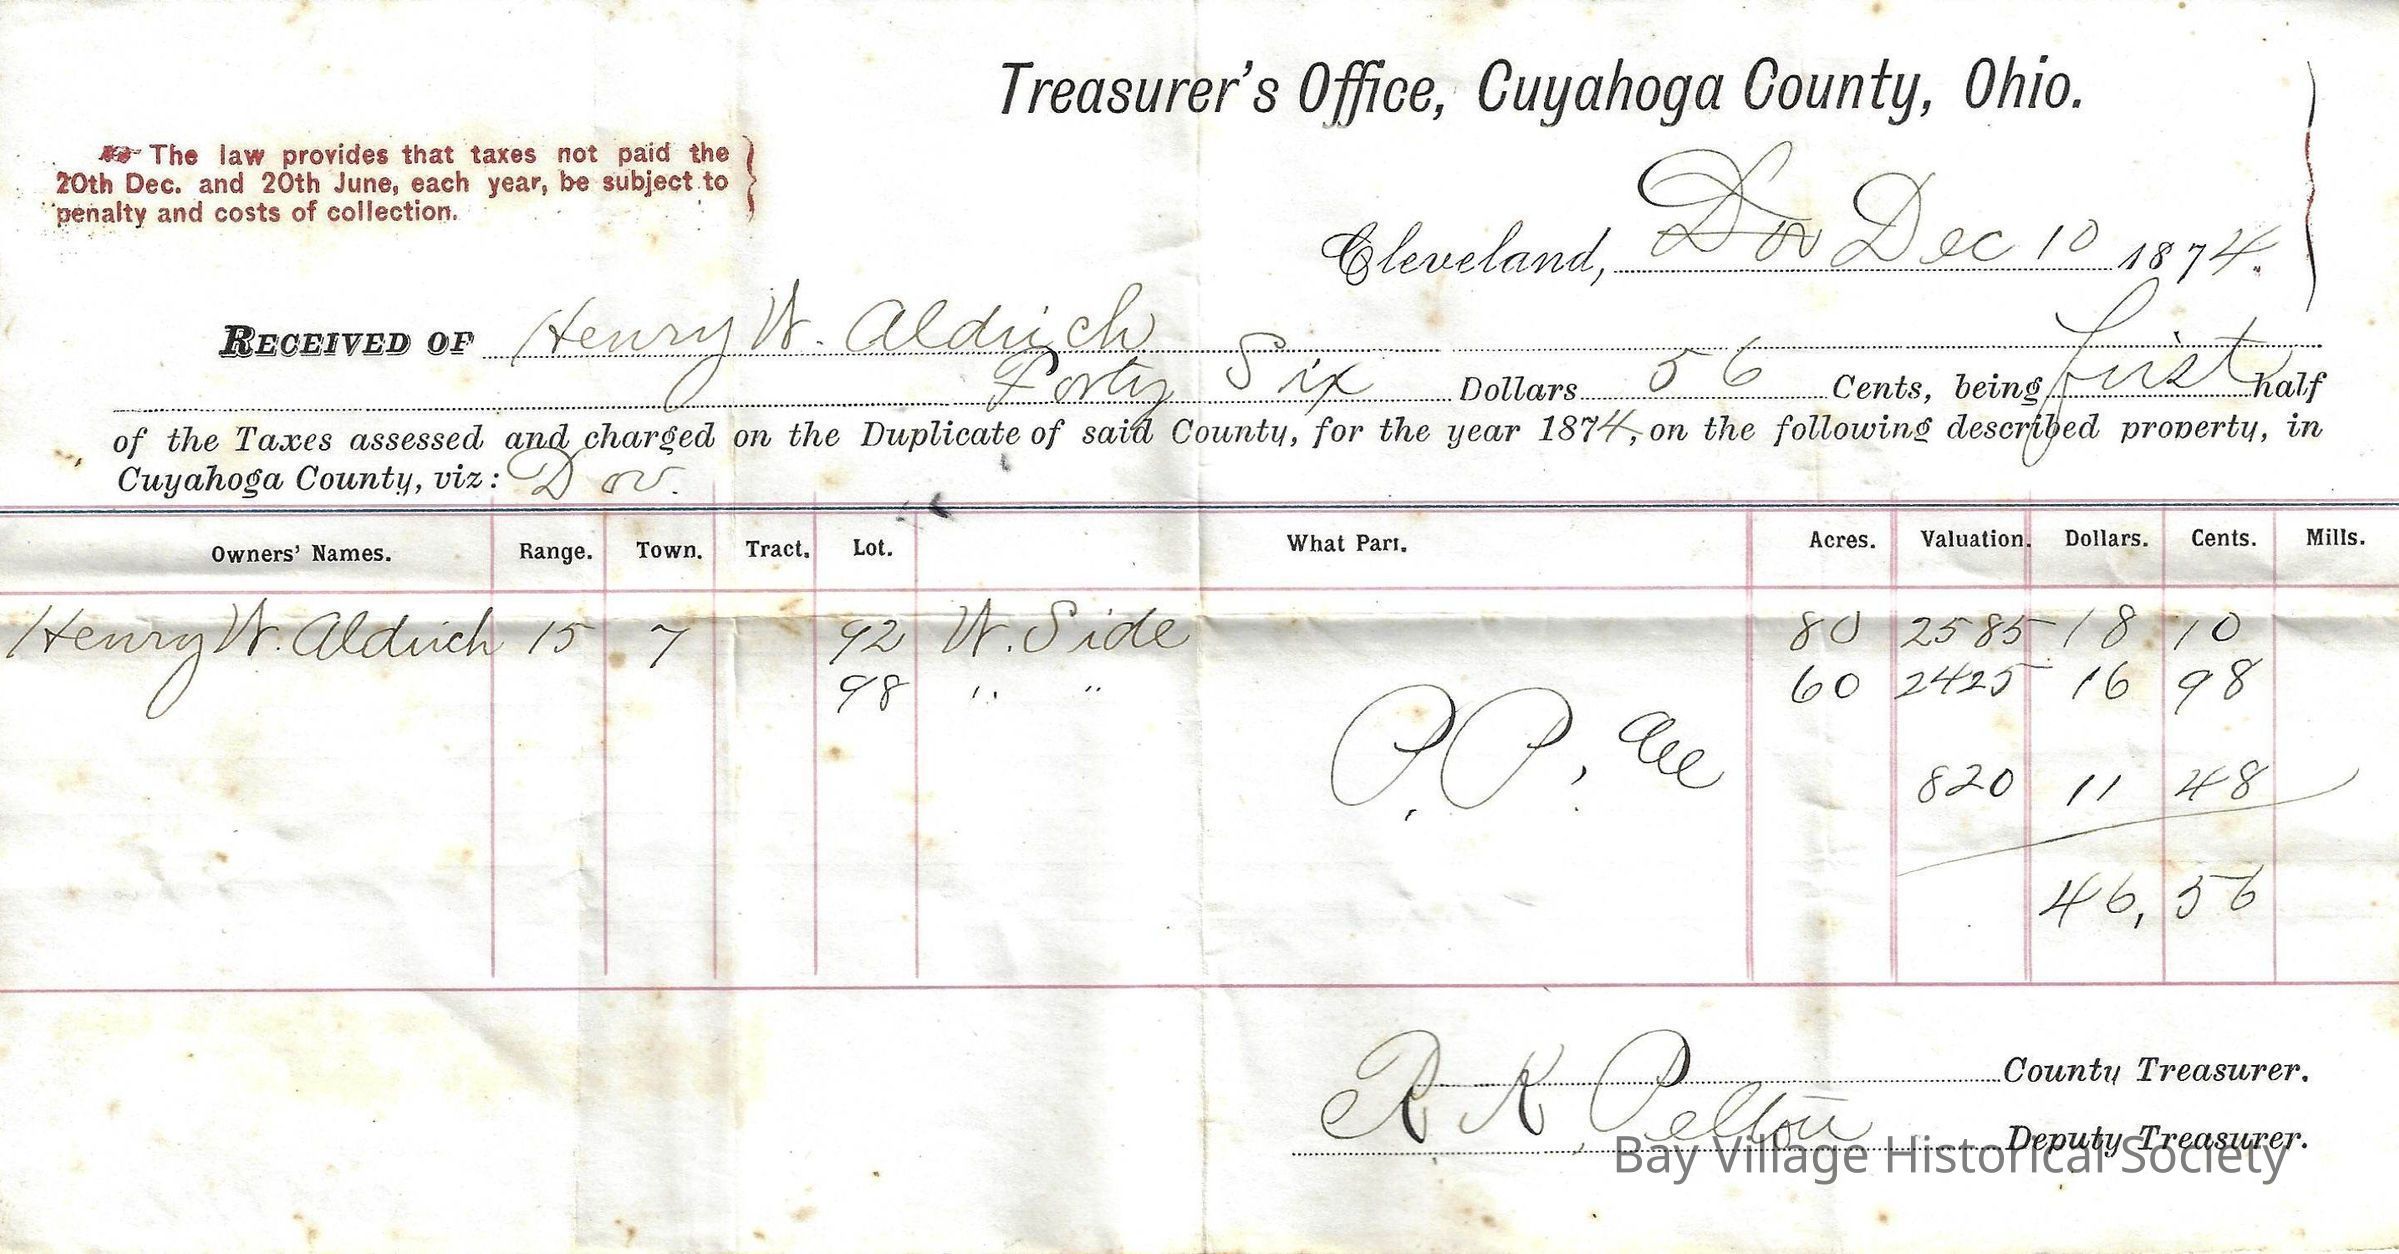 Treasurer's Office, Cuyahoga County, Ohio.
The law provides that taxes not paid the
20th Dec. and 20th June, each year, be subject to
penalty and costs of collection.
Cleveland, Dov Dec 10 1874.
RECEIVED OF Henry W. Aldrich
Forty Six Dollars 56 Cents, being first half
of the Taxes assessed and charged on the Duplicate of said County, for the year 1874, on the following described property, in
Cuyahoga County, viz: Dov.
Owners' Names. Range. Town. Tract. Lot. What Part. Acres. Valuation. Dollars. Cents. Mills.
Henry W. Aldrich 15 7 92 W. Side 80 2585 18 10
98 " " 60 2425 16 98
P.P, 820 11 48
46, 56
R K Pelton County Treasurer.
Deputy Treasurer.
Bay Village Historical Society